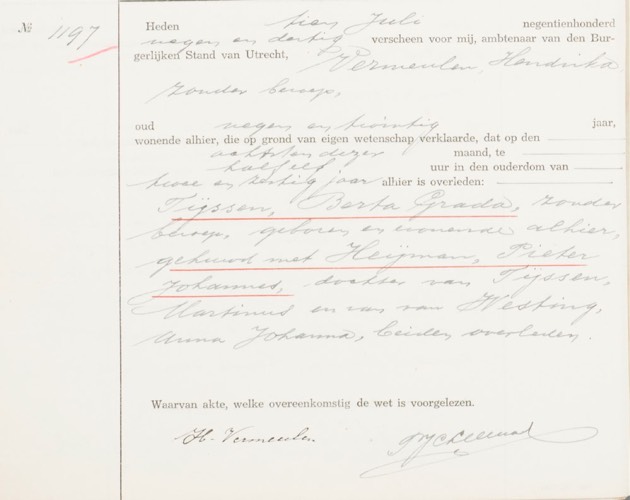 № 1197
Heden tien Juli negentienhonderd
negen en dertig verscheen voor mij, ambtenaar van den Bur-
gerlijken Stand van Utrecht, Vermeulen, Hendrika
zonder beroep,
oud negen en twintig jaar,
wonende alhier, die op grond van eigen wetenschap verklaarde, dat op den
achtsten dezer maand, te
half elf uur in den ouderdom van
twee en zestig jaar alhier is overleden:
Tijssen, Berta Grada, zonder
beroep, geboren en wonende alhier,
gehuwd met Heijman, Pieter
Johannes, dochter van Tijssen,
Martinus en van van Westing,
Anna Johanna, beiden overleden.
Waarvan akte, welke overeenkomstig de wet is voorgelezen.
H. Vermeulen